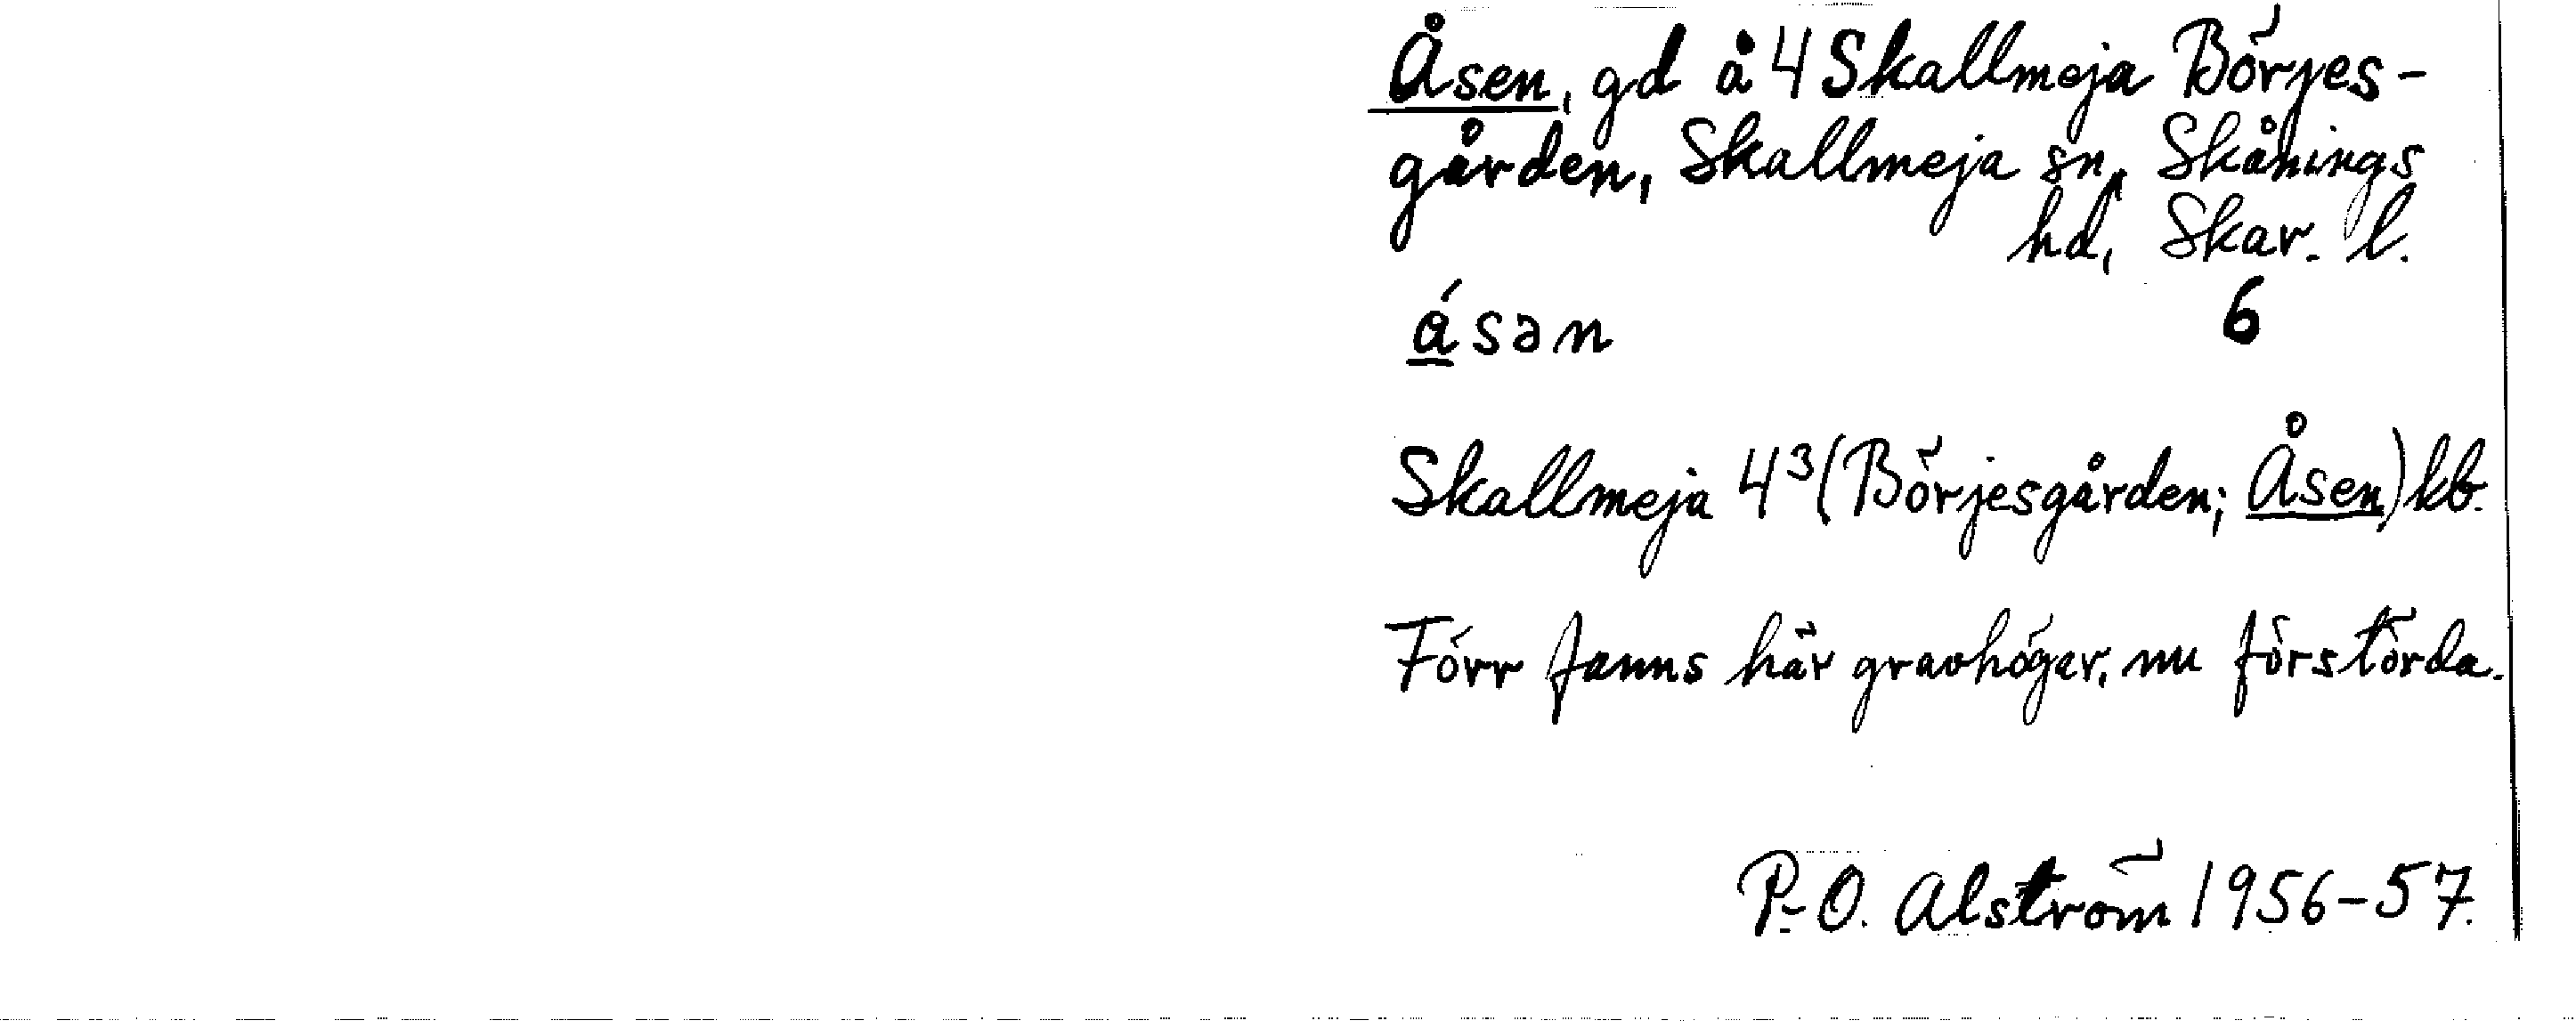 Åsen, gd å 4 Skallmeja Börjes-
gården, Skallmeja sn, Skånings
hd, Skar. l.
ásən 6
Skallmeja 4³ (Börjesgården; Åsen) kb.
Förr fanns här gravhögar, nu förstörda.
P.-O. Alström 1956-57.